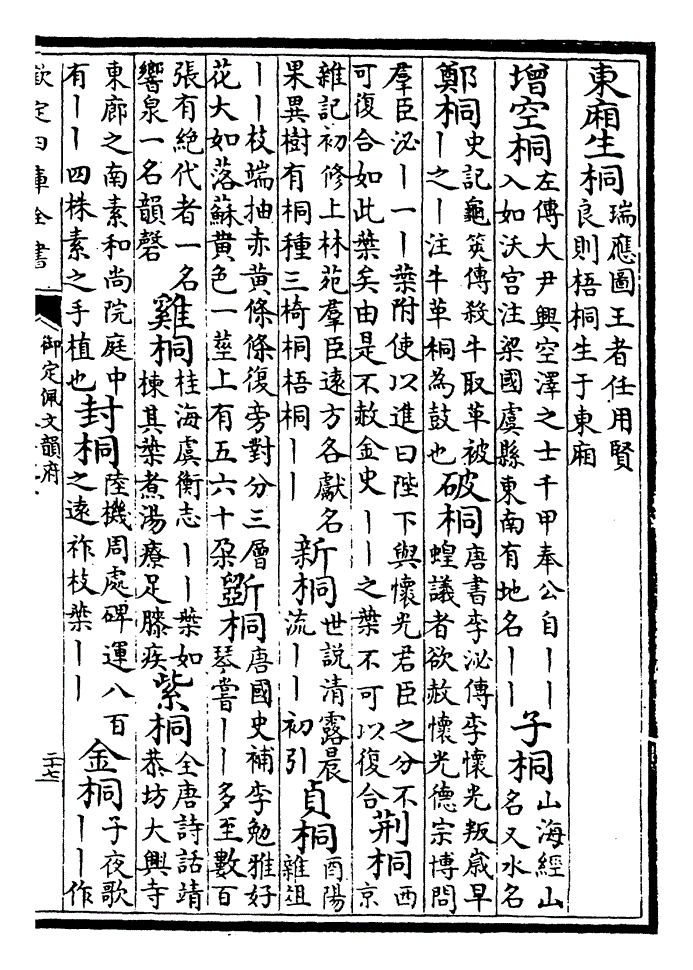 東廂生桐
瑞應圖王者任用賢
良則梧桐生于東廂
增空桐
左傳大尹興空澤之士千甲奉公自丨丨
入如沃宫注梁國虞縣東南有地名丨丨
子桐
山海經山
名又水名
鄭桐
史記龜筴傳殺牛取革被
丨之丨注牛革桐為鼓也
破桐
唐書李泌傳李懷光叛歳早
蝗議者欲赦懷光德宗博問
羣臣泌丨一丨葉附使以進曰陛下與懷光君臣之分不
可復合如此葉矣由是不赦金史丨丨之葉不可以復合
荆桐
西
京
雜記初修上林苑羣臣遠方各獻名
果異樹有桐種三椅桐梧桐丨丨
新桐
世説清露晨
流丨丨初引
貞桐
酉陽
雜俎
丨丨枝端抽赤黄條條復旁對分三層
花大如落蘇黄色一莖上有五六十朶
斵桐
唐國史補李勉雅好
琴嘗丨丨多至數百
張有絶代者一名
響泉一名韻磬
雞桐
桂海虞衡志丨丨葉如
楝其葉煮湯療足膝疾
紫桐
全唐詩話靖
恭坊大興寺
東廊之南素和尚院庭中
有丨丨四株素之手植也
封桐
陸機周處碑運八百
之遠祚枝葉丨丨
金桐
子夜歌
丨丨作
欽定四庫全書
御定佩文韻府
二十七